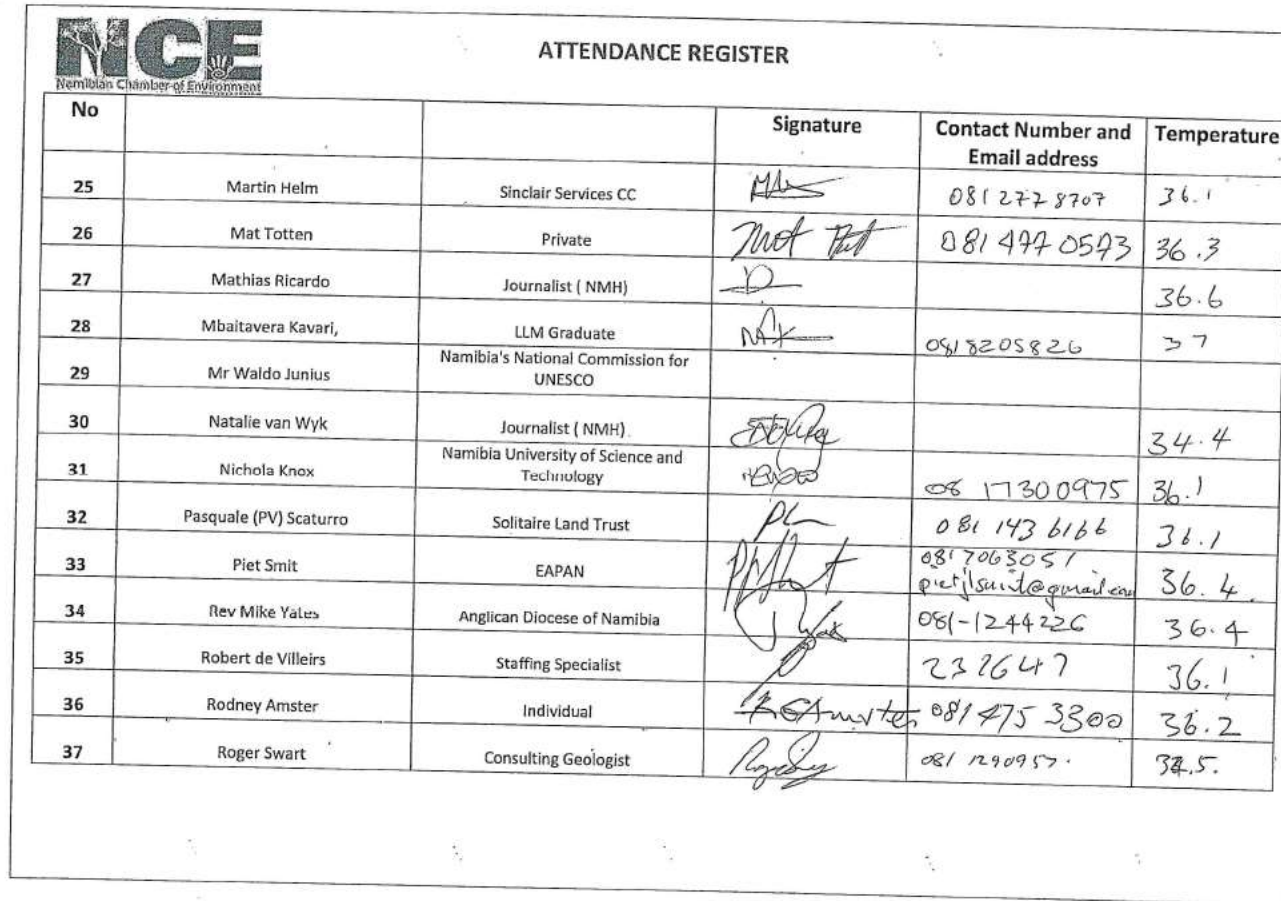 NCE
Namibian Chamber of Environment
ATTENDANCE REGISTER
No Signature Contact Number and Email address Temperature
25 Martin Helm Sinclair Services CC 081 277 8707 36.1
26 Mat Totten Private 081 477 0573 36.3
27 Mathias Ricardo Journalist ( NMH) 36.6
28 Mbaitavera Kavari, LLM Graduate 0818205826 37
29 Mr Waldo Junius Namibia's National Commission for UNESCO
30 Natalie van Wyk Journalist ( NMH) 34.4
31 Nichola Knox Namibia University of Science and Technology 08 17300975 36.1
32 Pasquale (PV) Scaturro Solitaire Land Trust 081 143 6166 36.1
33 Piet Smit EAPAN 0817063051 36.4
34 Rev Mike Yates Anglican Diocese of Namibia 081-1244226 36.4
35 Robert de Villeirs Staffing Specialist 36.1
36 Rodney Amster Individual 081 475 3300 36.2
37 Roger Swart Consulting Geologist 081 1290957.